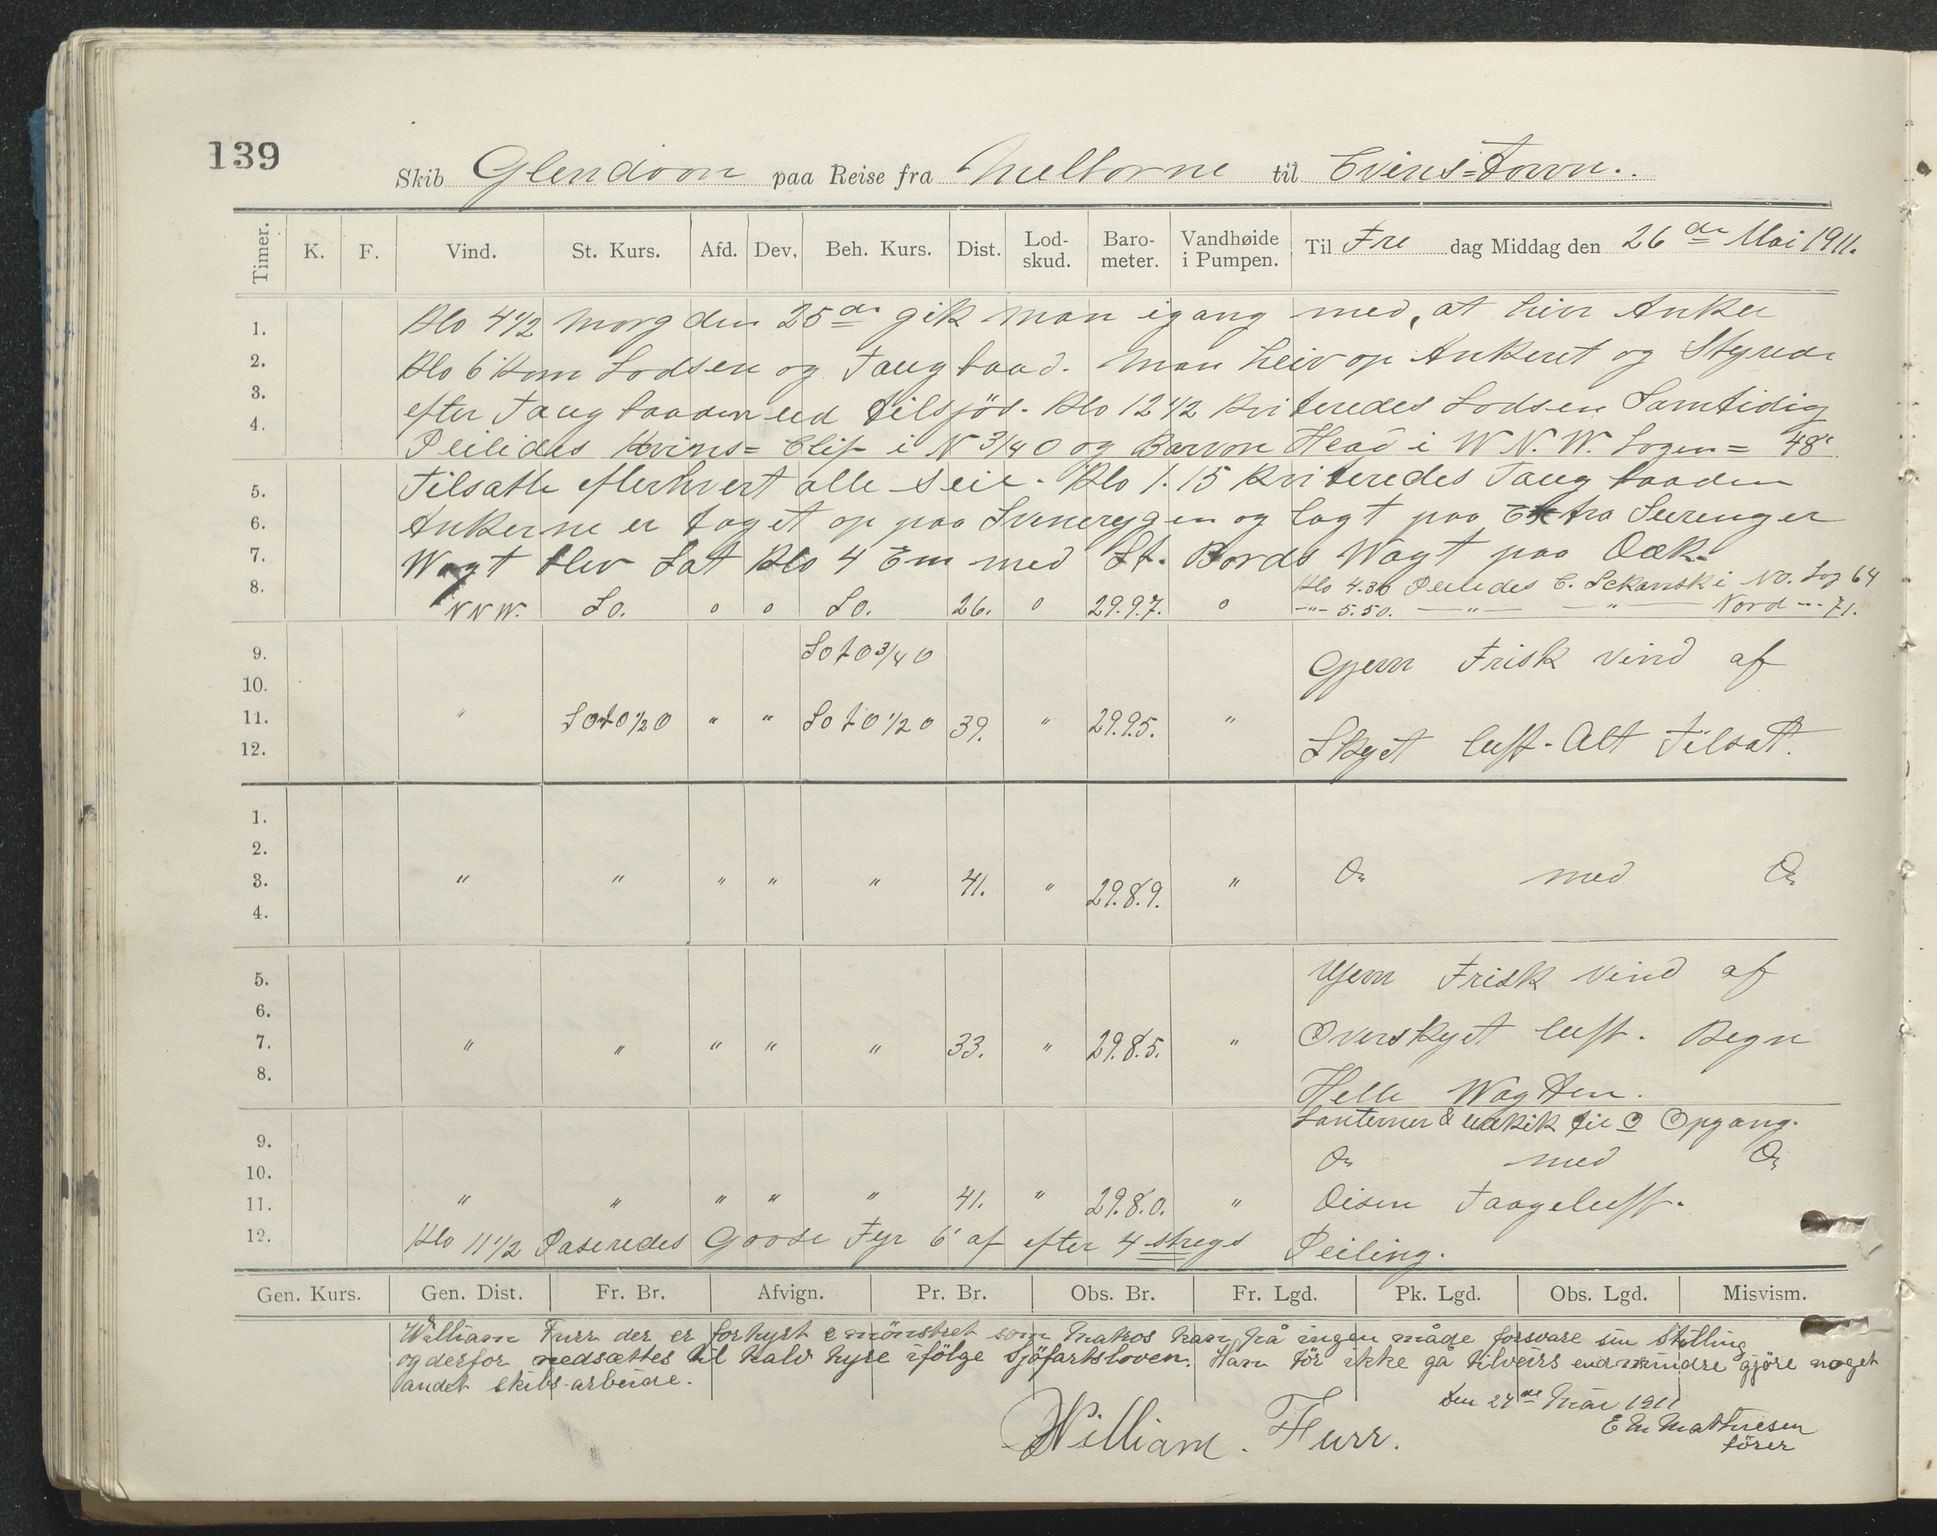 139
Skib Glendoon paa Reise fra Melborne til Qvins=Town.
Timer. K. F. Vind. St. Kurs. Afd. Dev. Beh. Kurs. Dist. Lod-skud. Baro-meter. Vandhøide i Pumpen. Til Fre dag Middag den 26 de Mai 1911.
1. Klo 4 1/2 Morg den 25 de gik man igang med, at hive Anker
2. Klo 6 kom Lodsen og Taugbaad. Man heiv op Ankeret og Styrede
3. efter Taugbaaden ud tilsjös. Klo 12 1/2 kviteredes Lodsen Samtidig
4. Peiledes Clif i N 3/4 O og Barvon Head i W N. W. Logen = 48'
5. Tilsatte efterhvert alle Seil. Klo 1.15 kviteredes Taugbaaden
6. Ankerne er taget op paa Svinerygen og lagt paa Extra Surringer
7. Wagt blev Sat Klo 4 Em med St. Bords Wagt paa Dæk.
Klo 4.30 Peiledes C. i NO. Log 64
8. N N W. So. o o So. 26. o 29.9.7. o -"- 5.50. -"- -"- Nord --- 71.
9. So t O 3/4 O Gjevn Frisk vind af
10.
11. " So t O 1/2 O " " So t O 1/2 O 39. " 29.9.5. "
12. Skyet luft. Alt Tilsat.
1.
2.
3. " " " " " 41. " 29.8.9. " Do med Do
4.
5. Gjevn Frisk vind af
6.
7. " " " " " 33. " 29.8.5. " Overskyet luft. Regn
8. Hele Wagten.
Lanterner & udkik til Opgang.
9.
10. Do med Do
11. " " " " " 41. " 29.8.0. " Disen Taageluft.
12. Klo 11 1/2 Paseredes Goose Fyr 6' af efter 4 stregs Peiling.
Gen. Kurs. Gen. Dist. Fr. Br. Afvign. Pr. Br. Obs. Br. Fr. Lgd. Pk. Lgd. Obs. Lgd. Misvism.
William Furr der er forhyrt & mönstret som Matros kan på ingen måde forsvare sin Stilling
og derfor nedsættes til halv hyre ifölge Sjöfartsloven. Han tör ikke gå tilveirs end mindre gjöre noget
andet skibs arbeide.
Den 24 de Mai 1911
William Furr. E M Mathiesen
förer